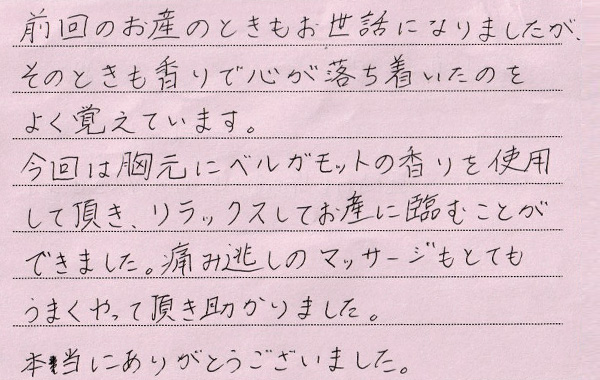 前回のお産のときもお世話になりましたが、
そのときも香りで心が落ち着いたのを
よく覚えています。
今回は胸元にベルガモットの香りを使用
して頂き、リラックスしてお産に臨むことが
できました。痛み逃しのマッサージもとても
うまくやって頂き助かりました。
本当にありがとうございました。